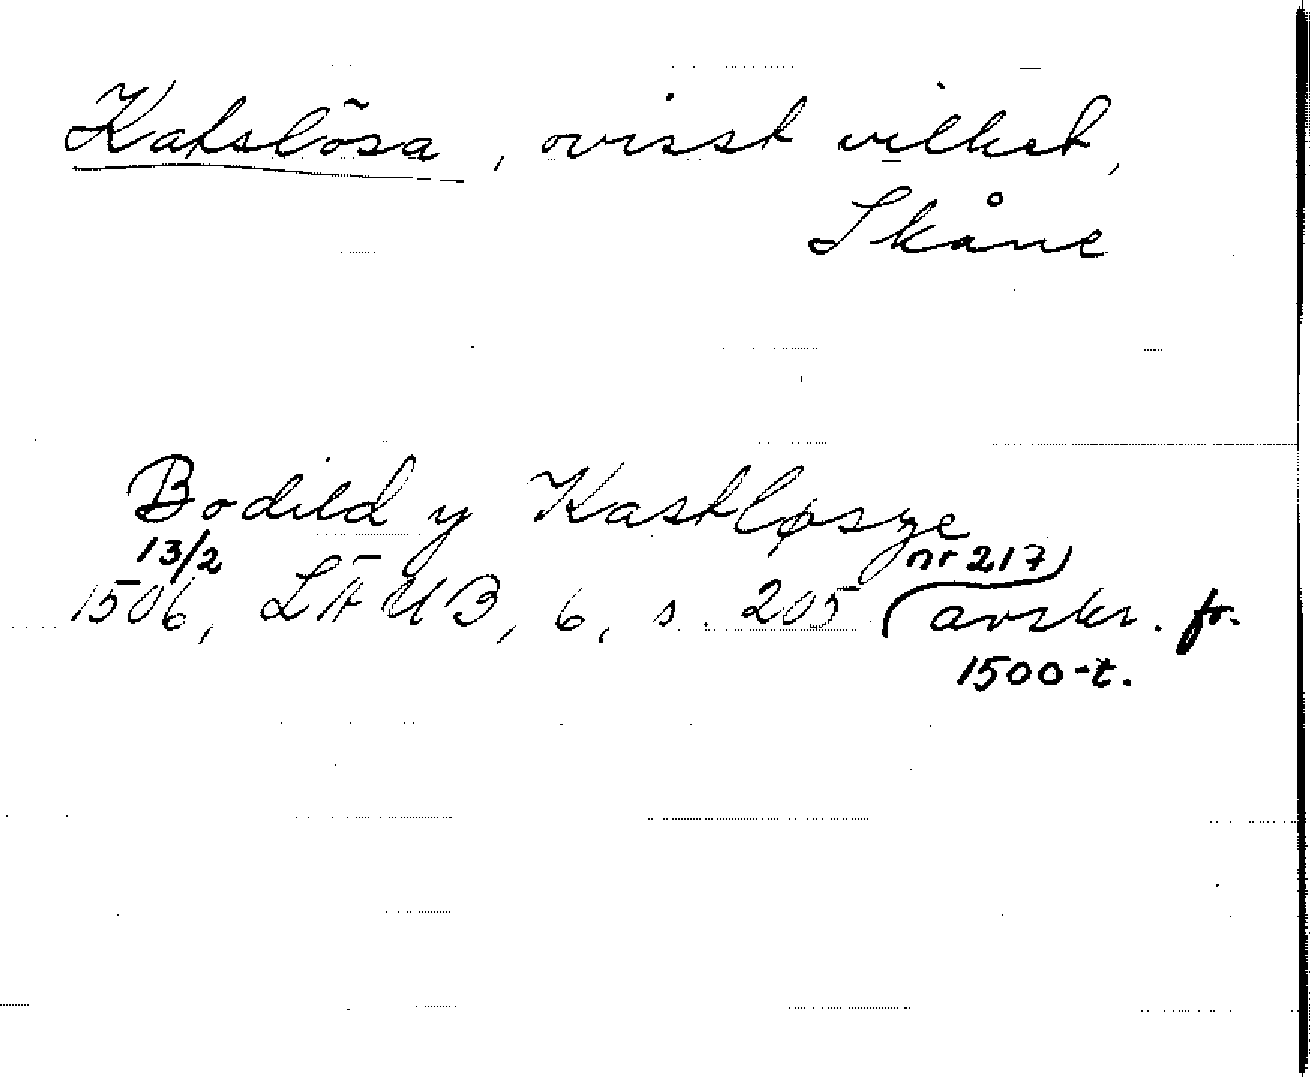 Katslösa, ovisst vilket,
Skåne
Bodild y Kastløsze
13/2 nr 217)
1506, LÄUB, 6, s. 205 (avskr. fr.
1500-t.